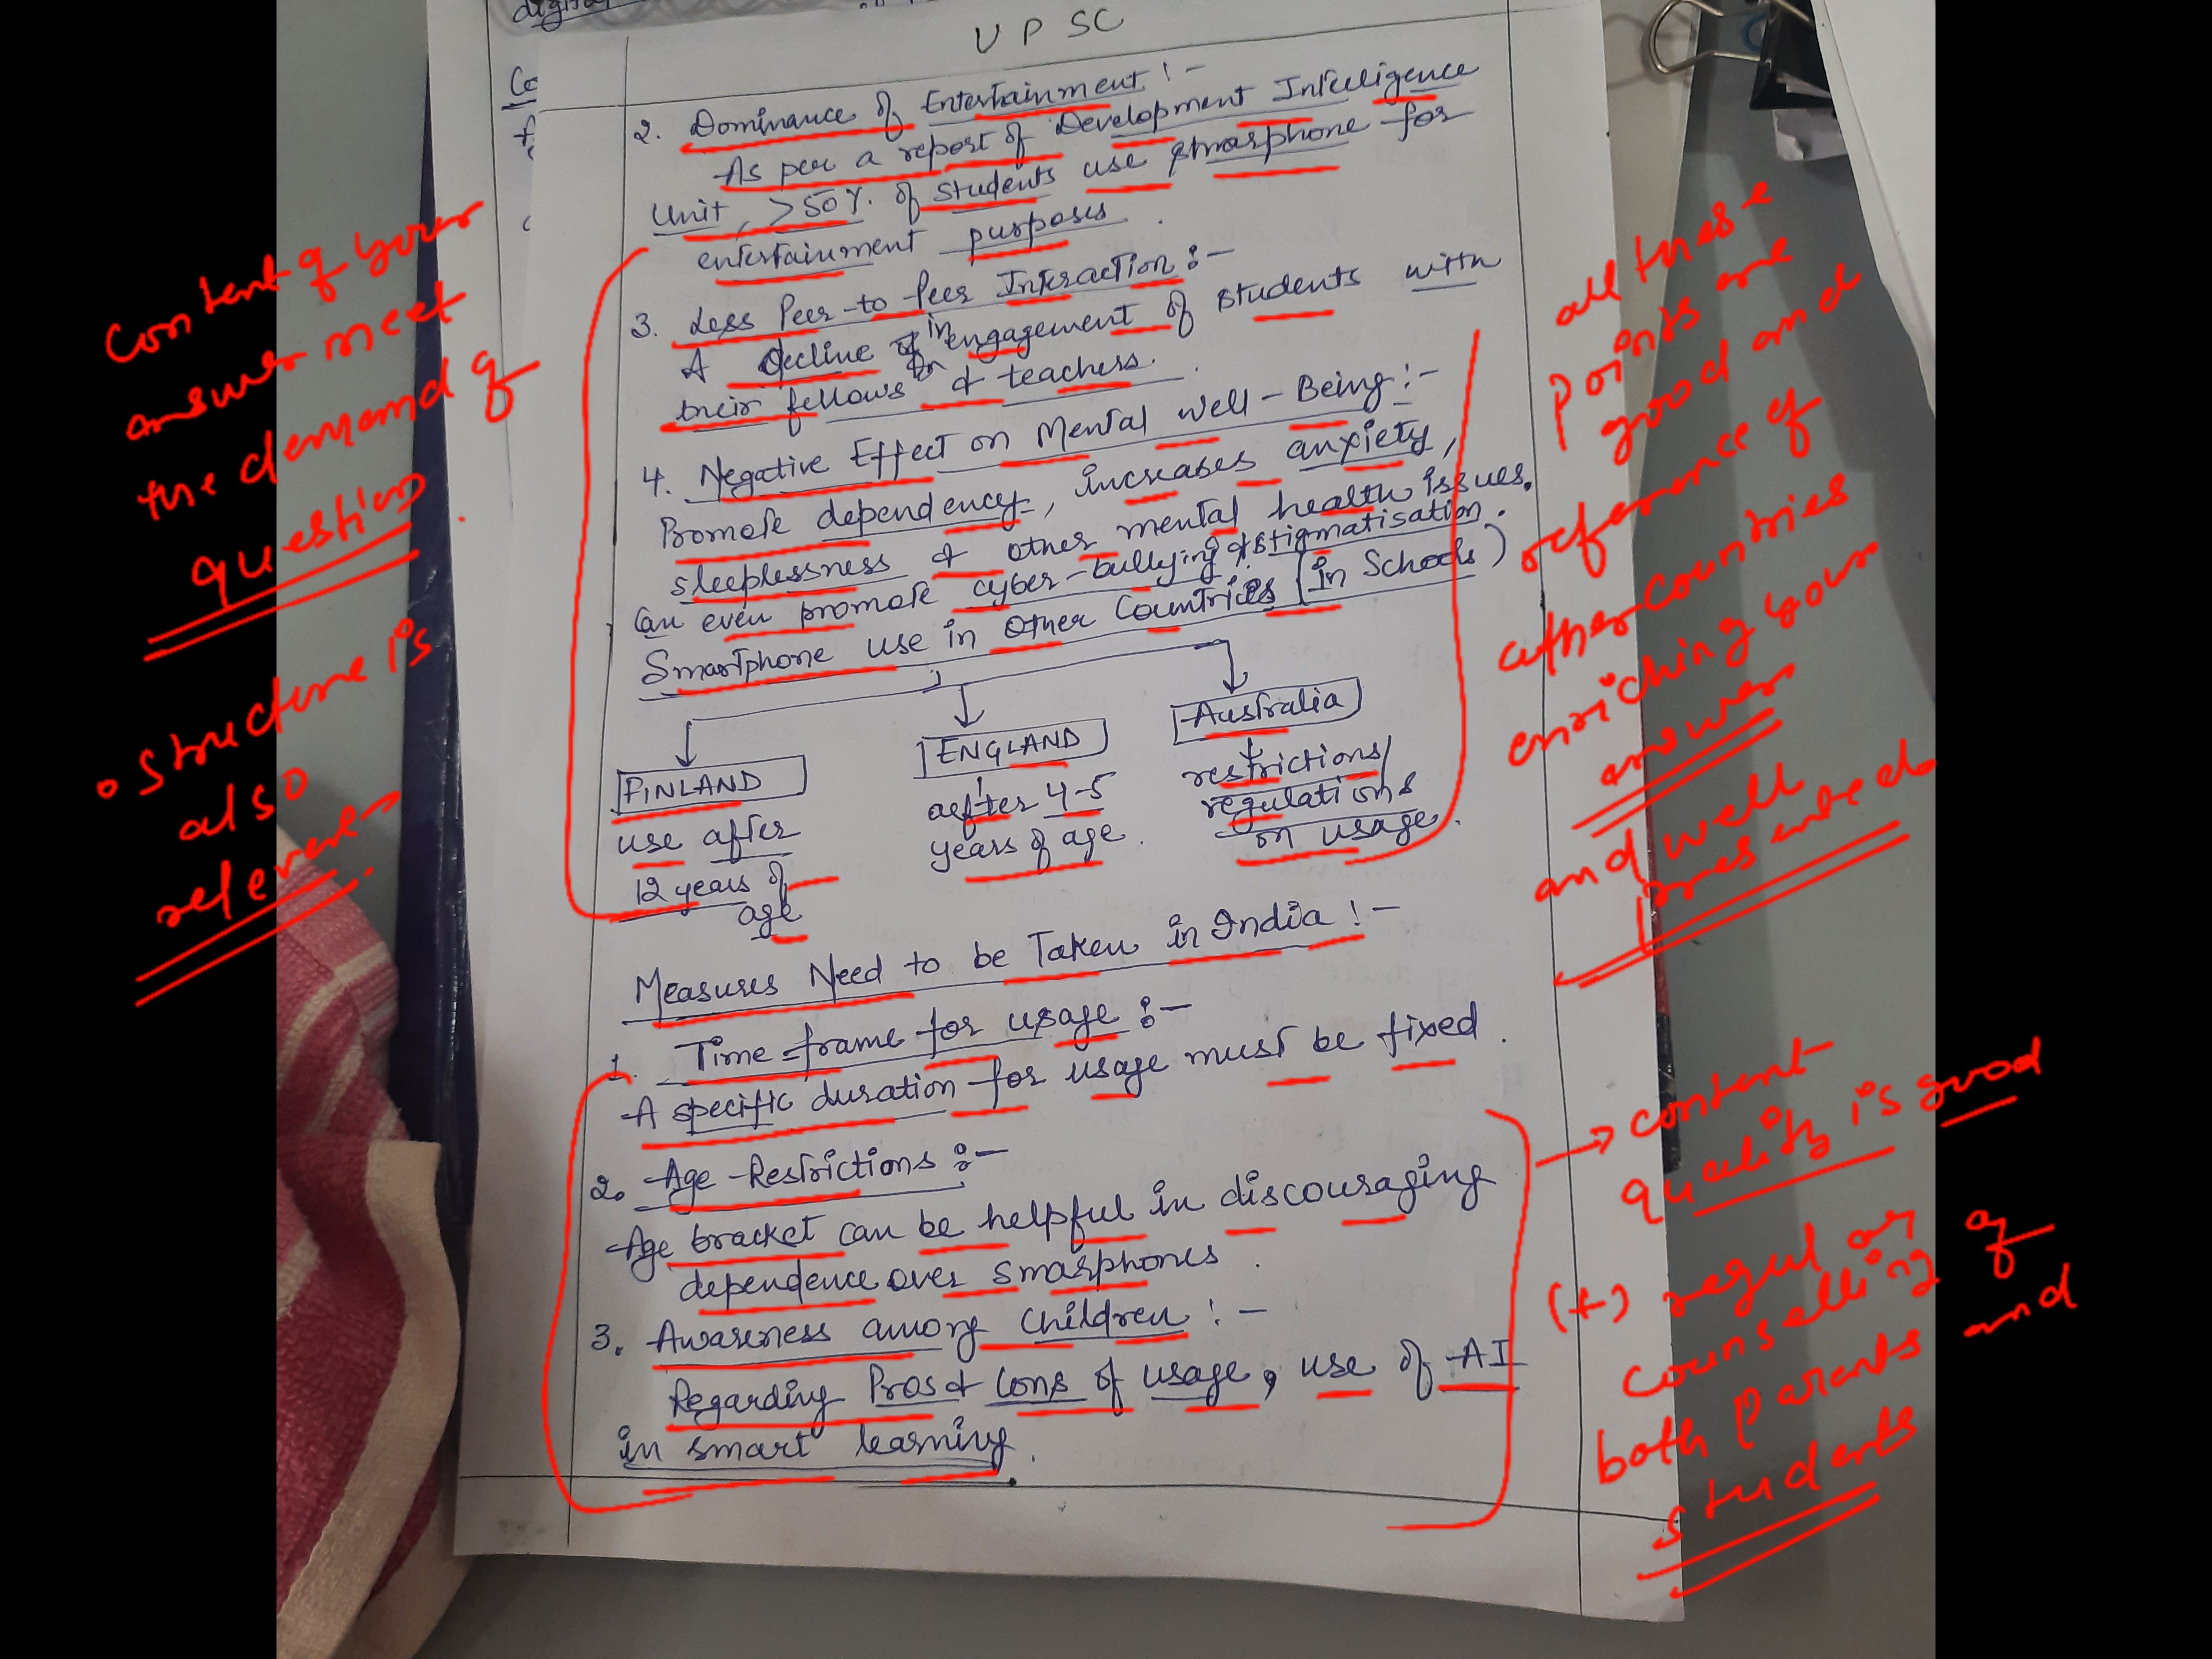 UPSC
2. Dominance of Entertainment :-
As per a report of Development Intelligence
Unit, >50% of students use smarphone for
entertainment purposes.
3. Less Peer-to-Peer Interaction :-
A decline in engagement of students with
their fellows & teachers.
4. Negative Effect on Mental Well-Being :-
Promote dependency, increases anxiety,
sleeplessness & other mental health issues.
Can even promote cyber-bullying & stigmatisation.
Smartphone use in Other Countries (in Schools)
FINLAND
use after
12 years of
age
ENGLAND
after 4-5
years of age.
Australia
restrictions/
regulations
on usage.
Measures Need to be Taken in India :-
1. Time-frame for usage :-
A specific duration for usage must be fixed.
2. Age-Restrictions :-
Age bracket can be helpful in discouraging
dependence over smarphones.
3. Awareness among Children :-
Regarding Pros & Cons of usage, use of AI
in smart learning.
Content of your
answer meet
the demand of
question.
• Structure is
also
relevent.
all these
points are
good and
reference of
other countries
enriching your
answer
and well
presented
→ content
quality is good
(+) regular
counselling of
both parants and
students